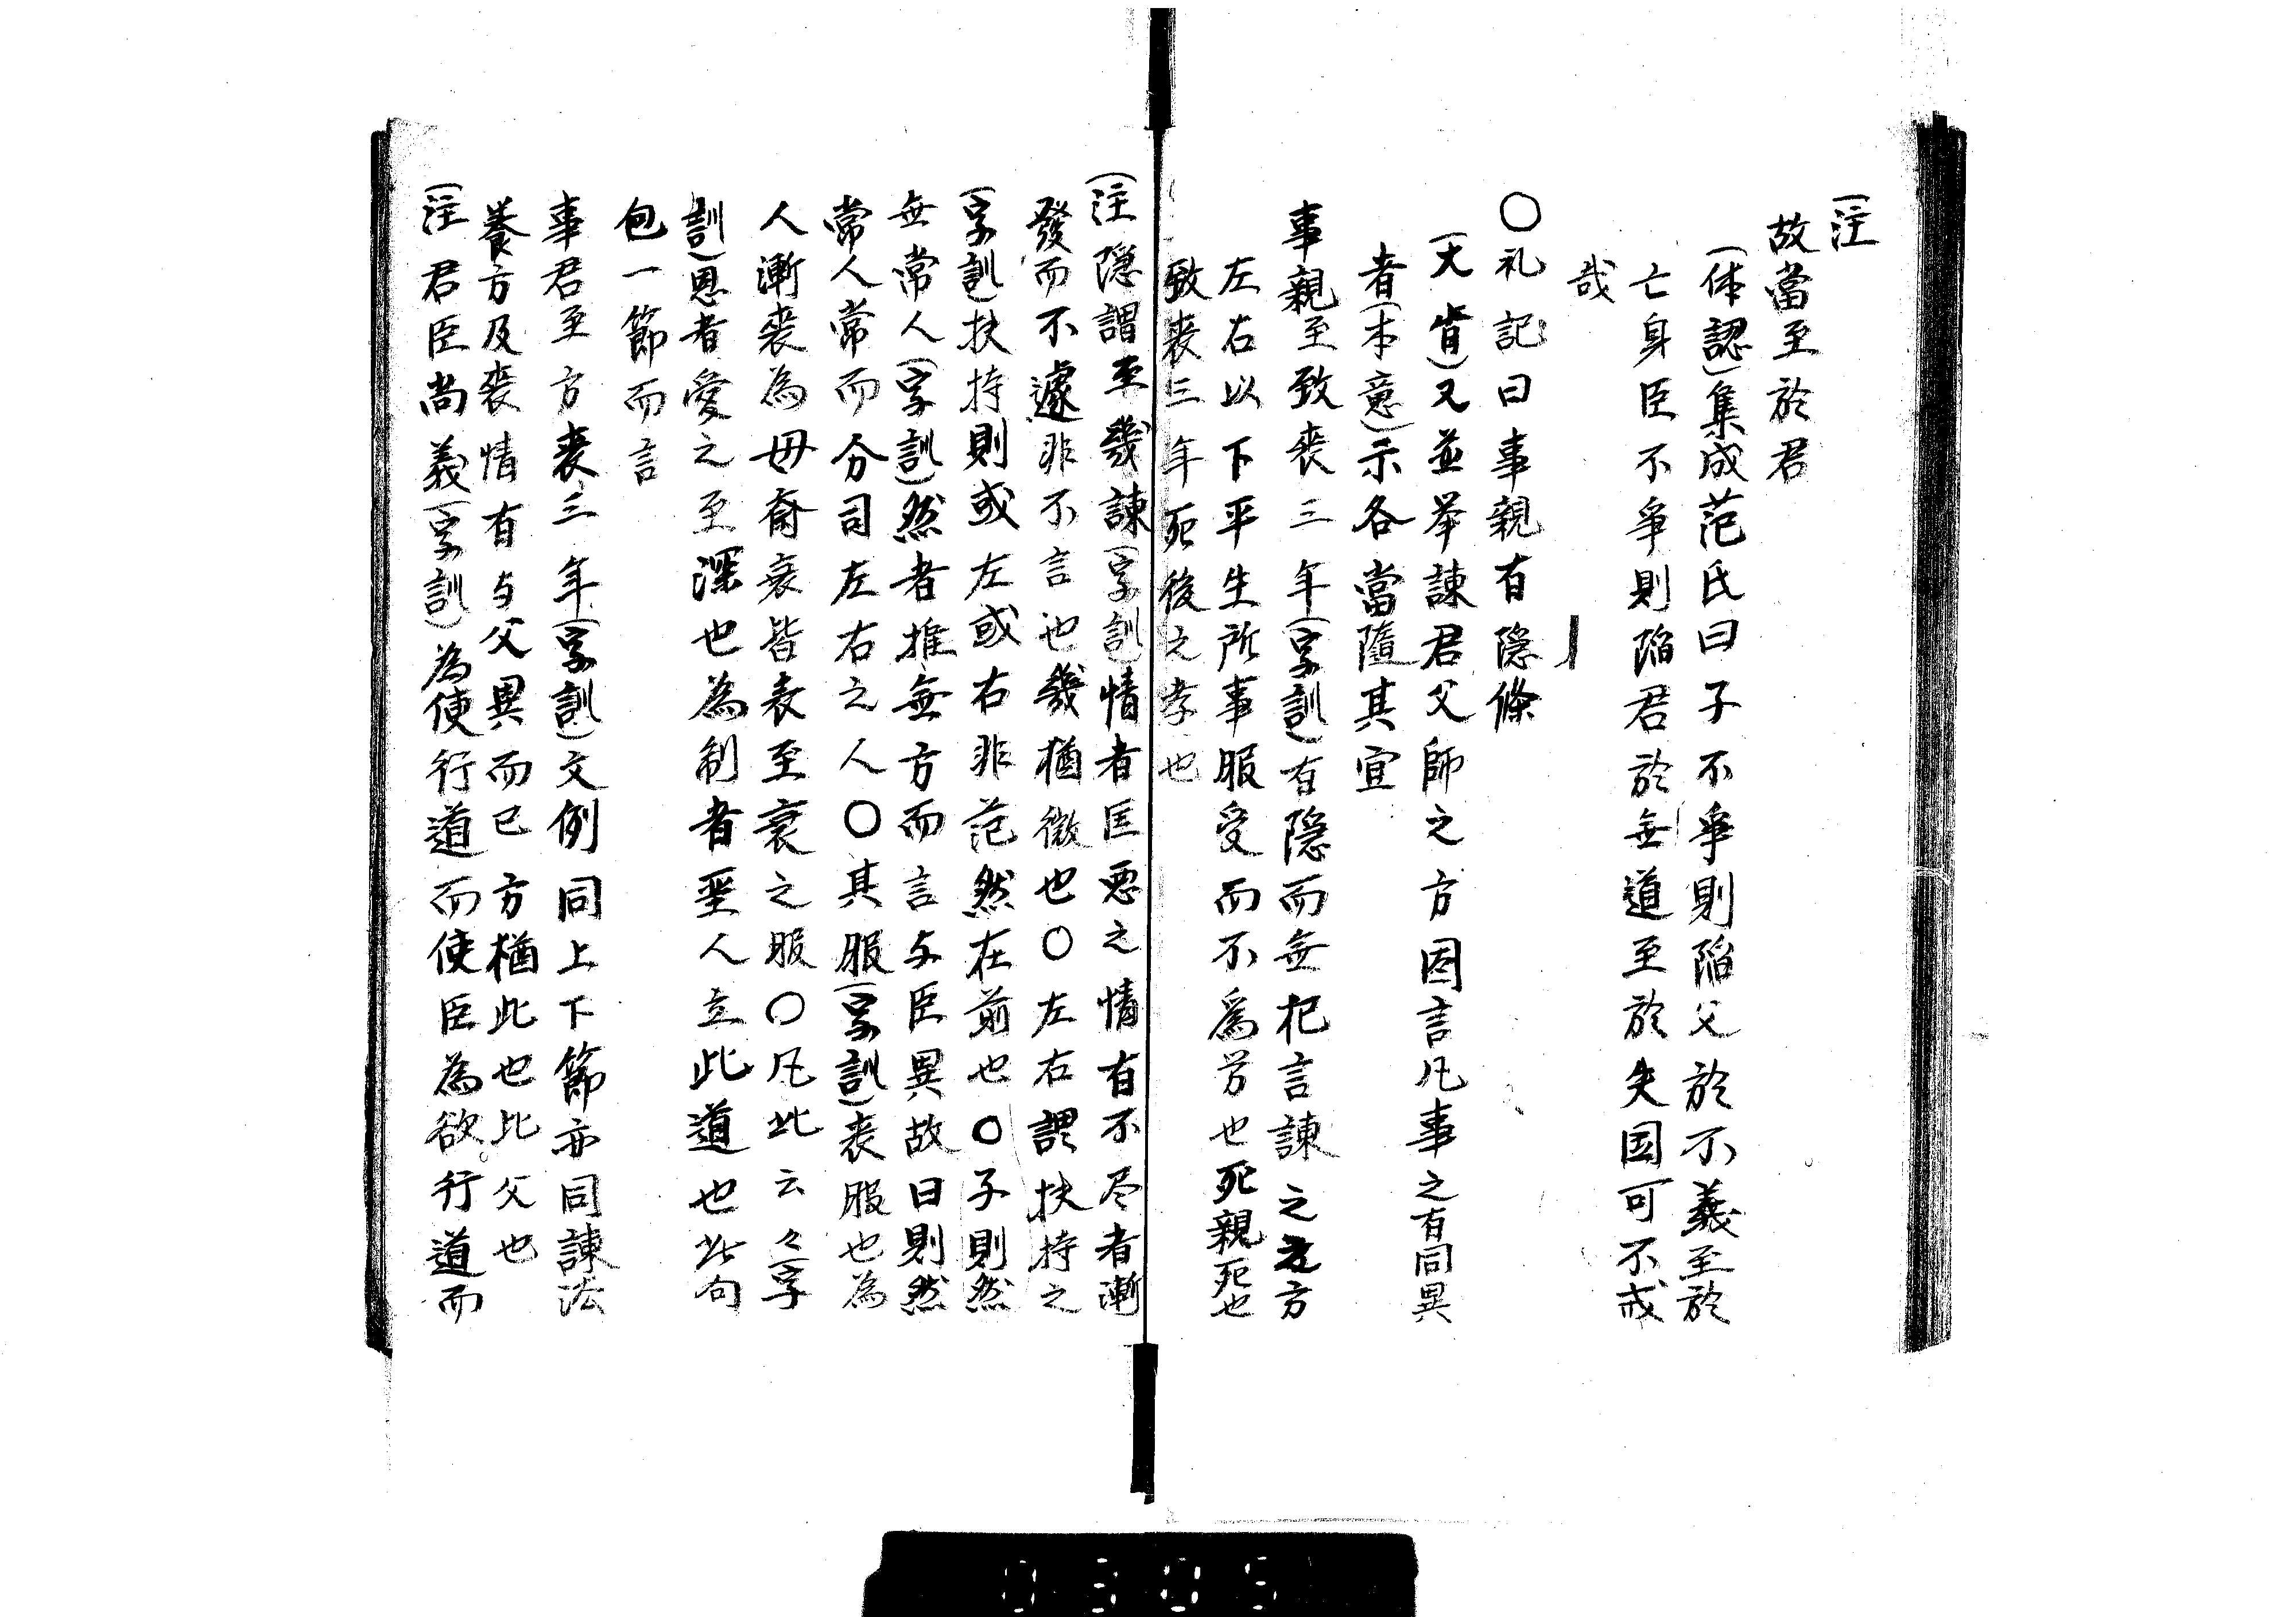 (注
故當至於君
(体認)集成范氏曰子不爭則陥父於不義至於
亡身臣不爭則陥君於無道至於失国可不戒
哉
○礼記曰事親有隠條
(大旨)又並挙諌君父師之方因言凡事之有同異
者(本意)示各當隨其宜
事親至致喪三年(字訓)有隠而無犯言諌之方
左右以下平生所事服受而不為方也死親死也
致喪三年死後之孝也
(注隠謂至幾諌(字訓)情者匡悪之情有不尽者漸
發而不遽非不言也幾猶微也○左右謂扶持之
(字訓)扶持則或左或右非范然在前也○子則然
無常人(字訓)然者推無方而言与臣異故曰則然
常人常而分司左右之人○其服(字訓)喪服也為
人漸喪為毋齊衰皆表至衰之服○凡此云々(字
訓)恩者愛之至深也為制者聖人立此道也此句
包一節而言
事君至方喪三年(字訓)文例同上下節亦同諌法
養方及喪情有与父異而已方猶此也比父也
(注君臣尚義(字訓)為使行道而使臣為欲行道而